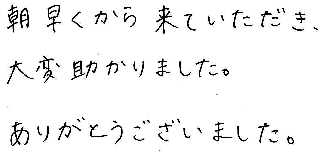 朝早くから来ていただき、
大変助かりました。
ありがとうございました。